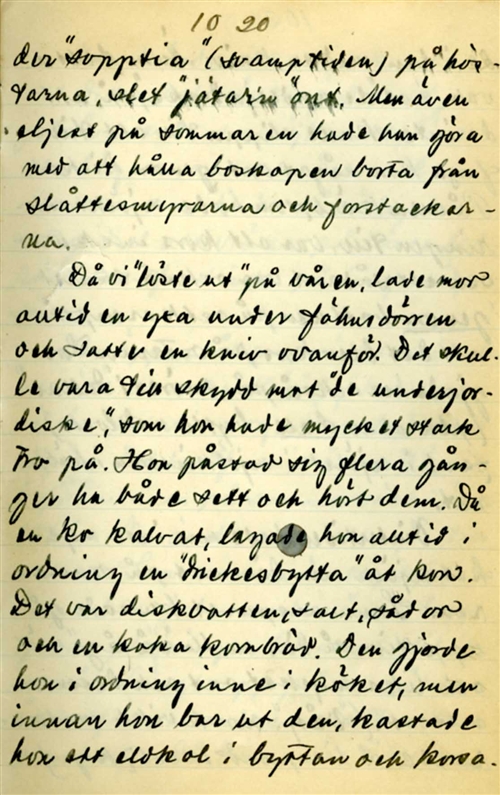 10 20
der "sopptia" (svamptiden) på hös-
tarna, slet "jätarn" önt. Men även
eljest på sommaren hade han göra
med att hålla boskapen borta från
slåttesmyrarna och forstackar-
na.
Då vi "löste ut" på våren, lade mor
alltid en yxa under fähusdörren
och satte en kniv ovanför. Det skul-
le vara till skydd mot "de underjor-
diske", som hon hade mycket stark
tro på. Hon påstod sig flera gån-
ger ha både sett och hört dem. Då
en ko kalvat, lagade hon alltid i
ordning en "drickesbytta" åt kon.
Det var diskvatten, salt, sådor
och en kaka kornbröd. Den gjorde
hon i ordning inne i köket, men
innan hon bar ut den, kastade
hon ett eldkol i byttan och korsa-